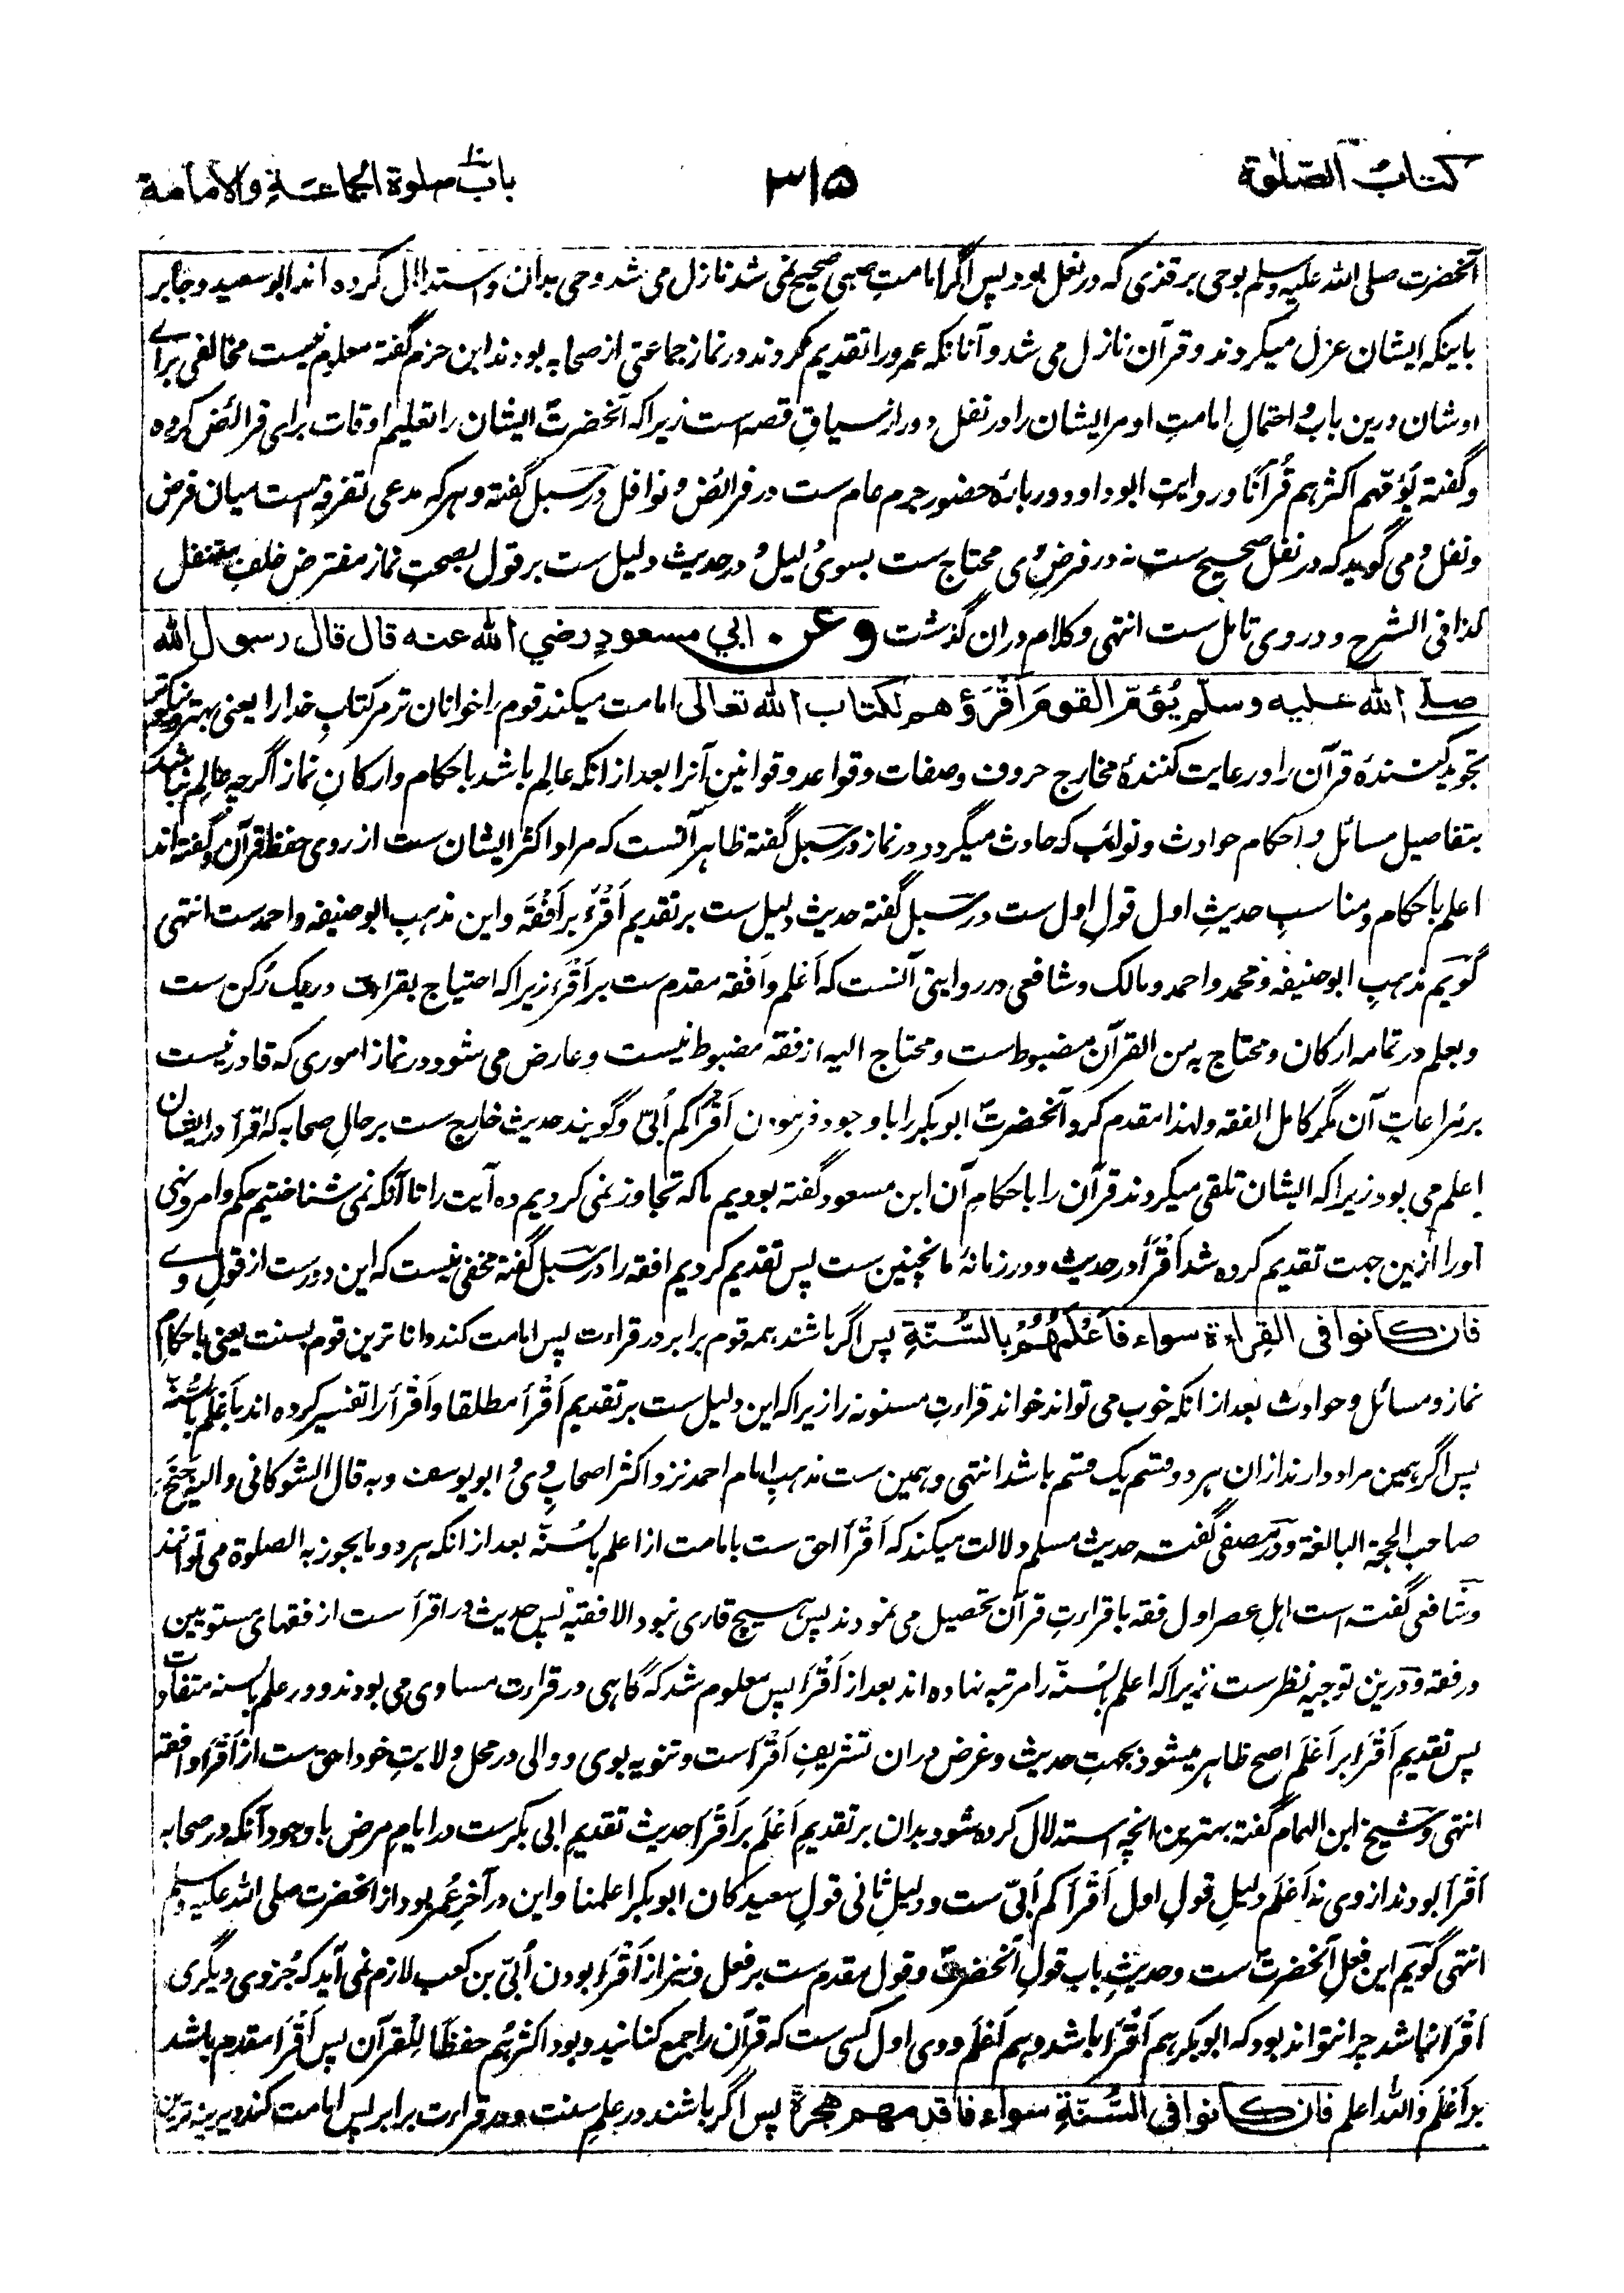 كتاب الصلوة
٣١٥
باب صلوة الجماعة والامامة
آنحضرت صلی الله علیه وسلم بوحی بر قذری که در نعل بود پس اگر امامتِ صبی صحیح نمی شد نازل می شد وحی بدان و استدلال کرده اند ابو سعید و جابر
باینکه ایشان عزل میکردند و قرآن نازل می شد و آنانکه عمرو را تقدیم کردند در نماز جماعتی از صحابه بودند ابن حزم گفته معلوم نیست مخالفی برای
اوشان درین باب و احتمالِ امامتِ او مر ایشان را در نفل دور از سیاقِ قصه است زیرا که آنحضرت ایشان را تعلیم اوقات برای فرائض کرده
و گفته یؤمّهم اکثرهم قُرآنًا و روایتِ ابوداود در بارهٔ حضور جرم عام ست در فرائض و نوافل در سبل گفته و هر که مدعی تفرقه است میان فرض
و نفل و می گوید که در نفل صحیح ست نه در فرض وی محتاج ست بسوی دلیل و در حدیث دلیل ست بر قول بصحتِ نماز مفترض خلفِ متنفل
کذا فی الشرح و در وی تامل ست انتهی و کلام دران گذشت وعن ابي مسعودٍ رضي الله عنه قال قال رسول الله
صلى الله عليه وسلم يُؤَمّ القومَ اَقْرَؤُهم لكتاب الله تعالى امامت میکند قوم را خوانان تر مر کتابِ خدا را یعنی بهتر و نیکوتر
تجوید کنندهٔ قرآن را و رعایت کنندهٔ مخارج حروف و صفات و قواعد و قوانینِ آنرا بعد از انکه عالِم باشد باحکام و ارکانِ نماز اگرچه عالِم نباشد
بتفاصیل مسائل و احکام حوادث و نوائب که حادث میگردد در نماز و در سبل گفته ظاهر آنست که مراد اکثر ایشان ست از روی حفظ قرآن و گفته اند
اعلم باحکام و مناسبِ حدیثِ اول قولِ اول ست در سبل گفته حدیث دلیل ست بر تقدیم اَقْرَء بر اَفْقَه و این مذهبِ ابو حنیفه و احمد ست انتهی
گویم مذهبِ ابوحنیفه و محمد و احمد و مالک و شافعی در روایتی آنست که اَعْلَم و اَفْقه مقدم ست بر اَقْرَء زیرا که احتیاج بقراءت در یک رُکن ست
و بعلم در تمامه ارکان و محتاج به من القرآن مضبوط ست و محتاج الیه از فقه مضبوط نیست و عارض می شود در نماز اموری که قادر نیست
بر مُراعاتِ آن مگر کامل الفقه و لهذا مقدم کرد آنحضرت ابوبکر را با وجود فرمودن اَقْرَأکم اُبَیّ و گویند حدیث خارج ست بر حالِ صحابه که اقرأ در ایشان
اعلم می بود زیرا که ایشان تلقی میکردند قرآن را باحکامِ آن ابن مسعود گفته بودیم ما که تجاوز نمی کردیم ده آیت را تا آنکه نمی شناختیم حکم و امر و نهی
اورا ازین جهت تقدیم کرده شد اَقْرَأ در حدیث و در زمانهٔ ما نچنین ست پس تقدیم کردیم افقه را در سبل گفته مخفی نیست که این دورست از قولِ وے
فان كانوا في القِراءة سواء فاَعْلَمُهُم بالسُّنّةِ پس اگر باشند همه قوم برابر در قراءت پس امامت کند دانا ترین قوم بسنت یعنی باحکامِ
نماز و مسائل و حوادث بعد از انکه خوب می تواند خواند قراءتِ مسنونه را زیرا که این دلیل ست بر تقدیم اَقْرَأ مطلقا و اَقْرَأ را تفسیر کرده اند باَعْلَم بالسُّنّه
پس اگر همین مراد دارند از ان هر دو قسم یک قسم باشد انتهی و همین ست مذهبِ امام احمد نزد اکثر اصحابِ وی و ابو یوسف و به قال الشوکانی و الیه جَنَح
صاحب الحجة البالغة و در مصفی گفته حدیث مسلم دلالت میکند که اَقْرَأ احق ست بامامت از اعلم بالسُنّه بعد از انکه هر دو ما یجوز به الصلوة می توانند
و شافعی گفته است اهلِ عصر اول فقه با قراءتِ قرآن تحصیل می نمودند پس هیچ قاری نبود الا فقیه پس حدیث در اقرأ ست از فقهای مستویین
در فقه و درین توجیه نظر ست زیرا که اعلم بالسُنّه را مرتبه نهاده اند بعد از اَقْرَأ پس معلوم شد که گاهی در قراءت مساوی می بودند و در علم بالسنه متفاوت
پس تقدیمِ اَقْرَأ بر اَعْلَم اصح ظاهر میشود بجهتِ حدیث و غرض دران تشریفِ اَقْرَأ ست و تنویه بوی و والی در محل ولایتِ خود احق ست از اَقْرَأ و افقه
انتهی و شیخ ابن الهمام گفته بهترین آنچه استدلال کرده شود بدان بر تقدیمِ اَعْلَم بر اَقْرَأ حدیث تقدیمِ ابی بکر ست در ایامِ مرض با وجود آنکه در صحابه
اَقْرَأ بودند از وی نه اَعْلَم دلیلِ قولِ اول اَقْرَأکم اُبَیّ ست و دلیلِ ثانی قولِ سعید کان ابوبکر اعلمنا و این در آخرِ عُمر بود از آنحضرت صلی الله علیه وسلم
انتهی گویم این فعلِ آنحضرت ست و حدیثِ باب قولِ آنحضرت و قول مقدم ست بر فعل و نیز از اَقْرَأ بودن اُبَیّ بن کعب لازم نمی آید که جُز وی دیگری
اَقْرَأ نباشد چرا نتواند بود که ابوبکر هم اَقْرَأ باشد و هم اَعْلَم و وی اول کسی ست که قرآن را جمع کنانید و بود اکثرهُم حفظًا لِلقرآن پس اَقْرَأ مقدم باشد
بر اَعْلَم والله اعلم فان كانوا في السُّنّةِ سواء فاقدمهم هجرةً پس اگر باشند در علمِ سنت و در قراءت برابر پس امامت کند دیرینه ترین